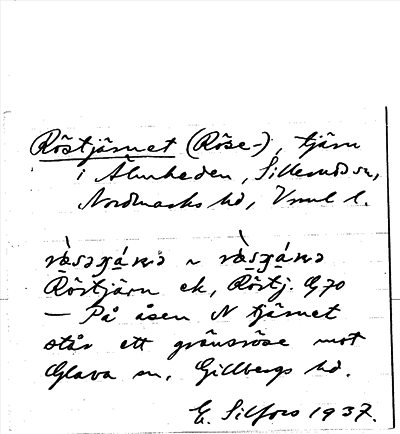 Röstjärnet (Röse-), tjärn
i Älmheden, Sillerud sn,
Nordmarks hd, Vrml l.
ròsəʒánə ~ ròsʒánə
Röstjärn ek, Röstj. G70
— På åsen N tjärnet
står ett gränsröse mot
Glava sn, Gillbergs hd.
E. Silfors 1937.